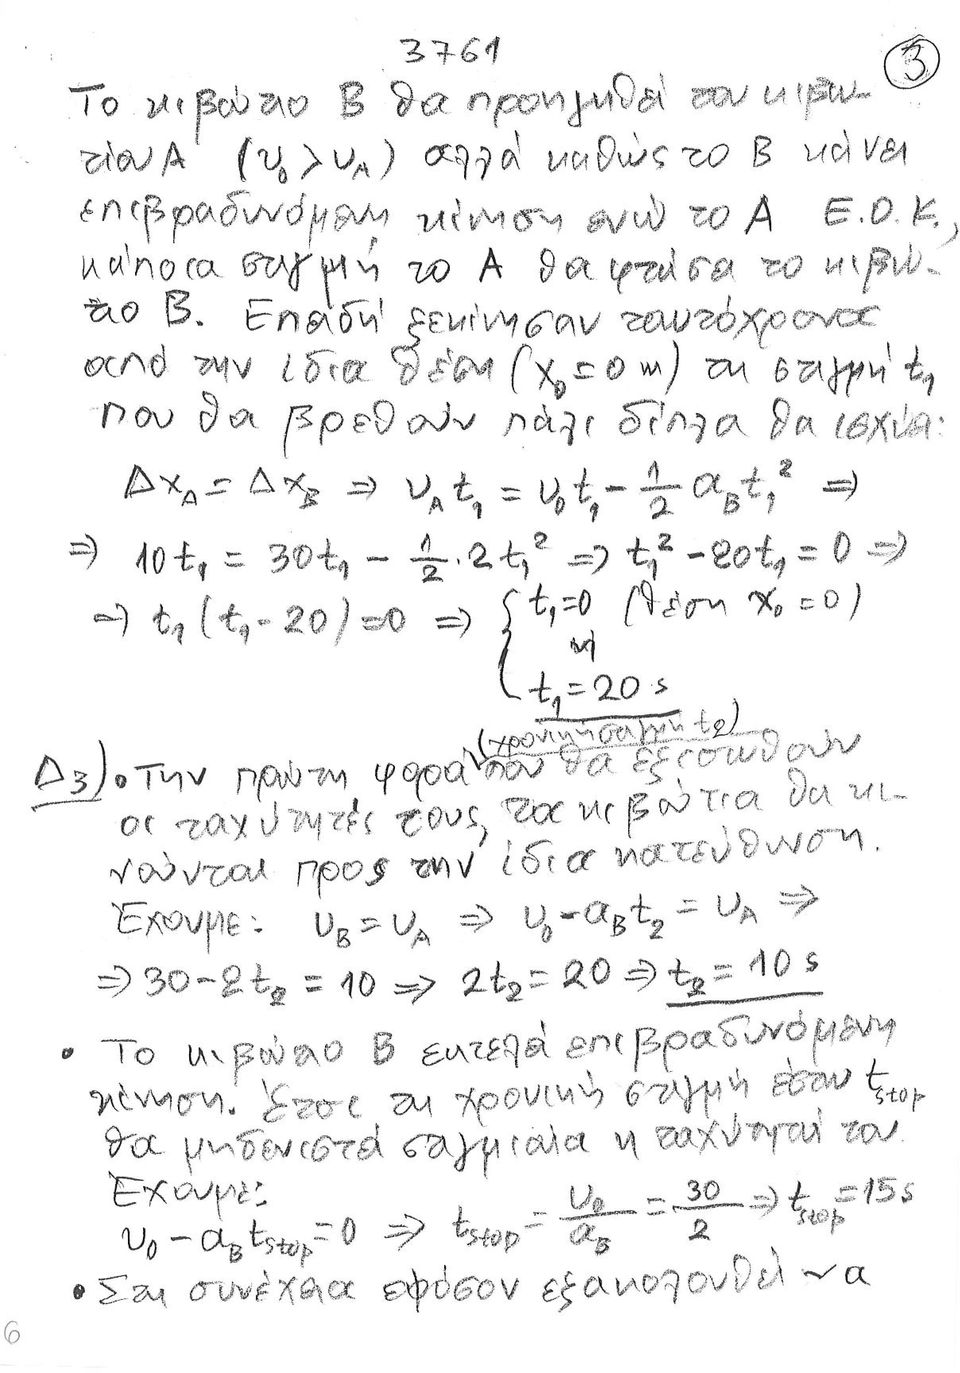 3761
3
Το κιβώτιο Β θα προηγηθεί του κιβω-
τίου Α (υ₀ > υ_A) αλλά καθώς το Β κάνει
επιβραδυνόμενη κίνηση ενώ το Α Ε.Ο.Κ.,
κάποια στιγμή το Α θα φτάσει το κιβώ-
τιο Β. Επειδή ξεκίνησαν ταυτόχρονα
από την ίδια θέση (x₀ = 0 m) τη στιγμή t₁
που θα βρεθούν πάλι δίπλα θα ισχύει:
Δx_A = Δx_B ⇒ υ_A t₁ = υ₀t₁ - 1/2 α_B t₁² ⇒
⇒ 10t₁ = 30t₁ - 1/2 · 2t₁² ⇒ t₁² - 20t₁ = 0 ⇒
⇒ t₁(t₁ - 20) = 0 ⇒ { t₁ = 0 (θέση x₀ = 0)
ή
t₁ = 20 s
(χρονική στιγμή t₂)
Δ3) • Την πρώτη φορά που θα εξισωθούν
οι ταχύτητές τους, τα κιβώτια θα κι-
νούνται προς την ίδια κατεύθυνση.
Έχουμε: υ_B = υ_A ⇒ υ₀ - α_B t₂ = υ_A ⇒
⇒ 30 - 2t₂ = 10 ⇒ 2t₂ = 20 ⇒ t₂ = 10 s
• Το κιβώτιο Β εκτελεί επιβραδυνόμενη
κίνηση. Έτσι τη χρονική στιγμή έστω t_stop
θα μηδενιστεί στιγμιαία η ταχύτητά του.
Έχουμε:
υ₀ - α_B t_stop = 0 ⇒ t_stop = υ₀/α_B = 30/2 ⇒ t_stop = 15 s
• Στη συνέχεια εφόσον εξακολουθεί να
6